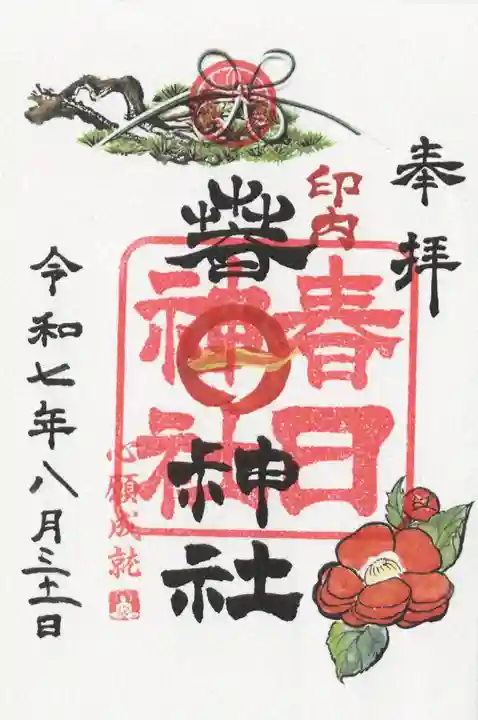 奉拝
印内
春日
神社
萅
神社
心願成就
令和七年八月三十一日